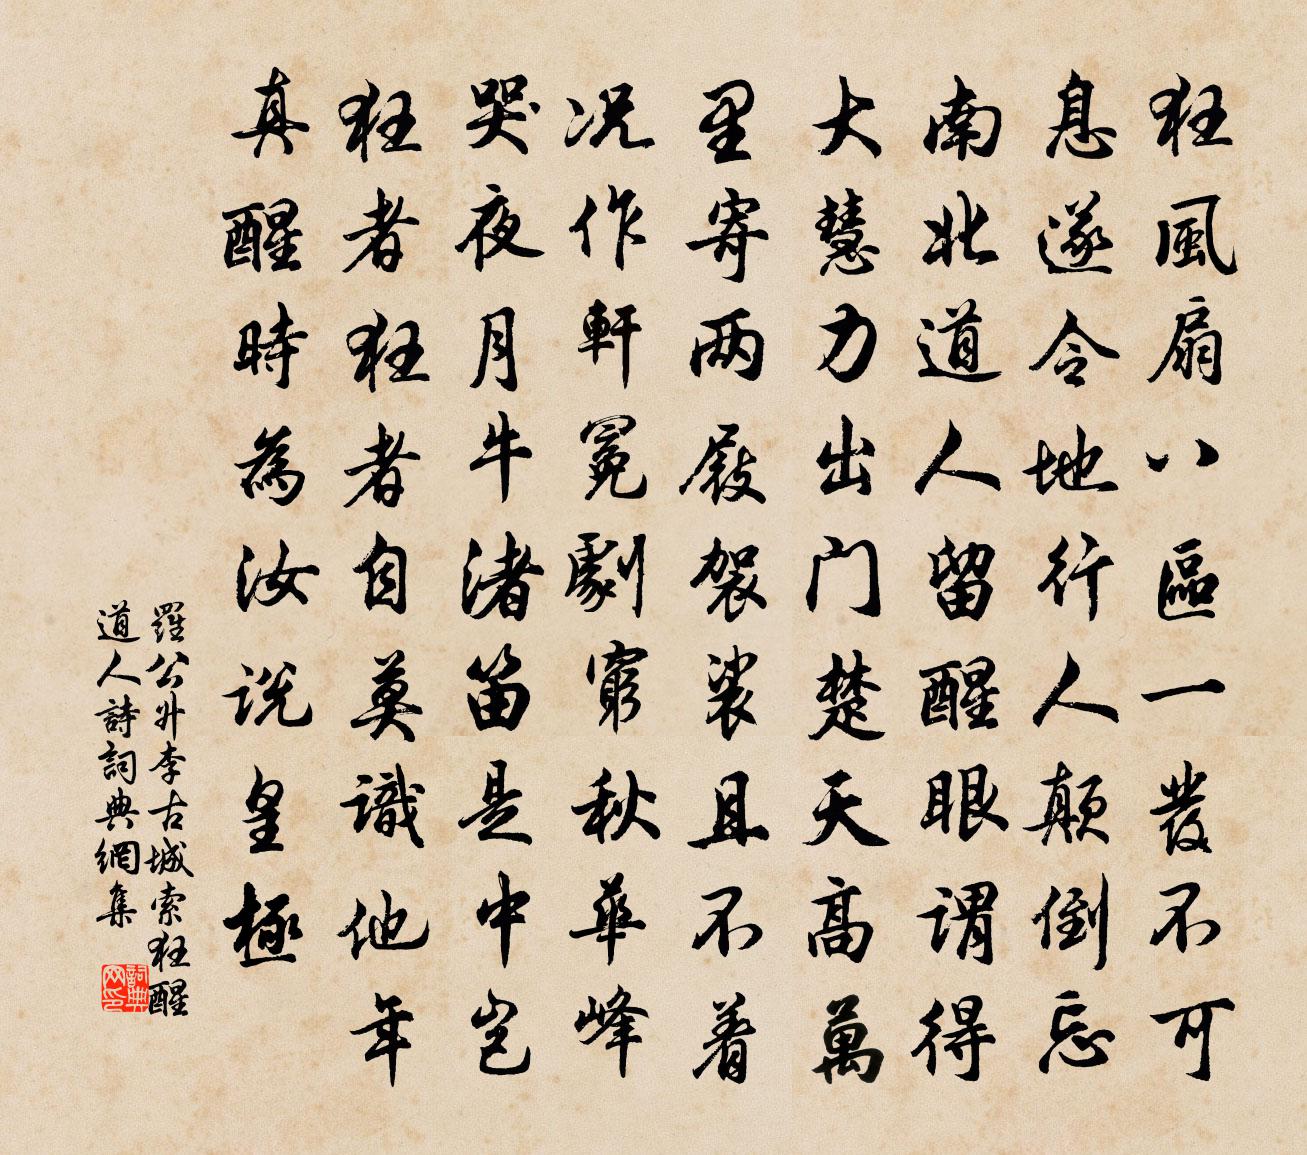 狂風扇八區一發不可
息遂令地行人顛倒忘
南北道人留醒眼謂得
大慧力出門楚天高萬
里寄两屐袈裟且不着
况作軒冕劇窮秋華峰
哭夜月牛渚笛是中豈
狂者狂者自莫識他年
真醒時為汝説皇極
羅公升李古城索狂醒
道人詩詞典網集
詞典网印